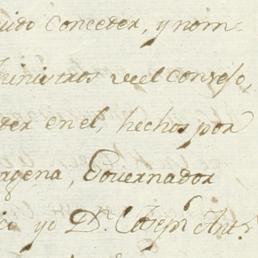 uido conceder, y nom-
Ministros del Consejo,
der en el, hechos por
agena, Governador
yo Dn. Ant.